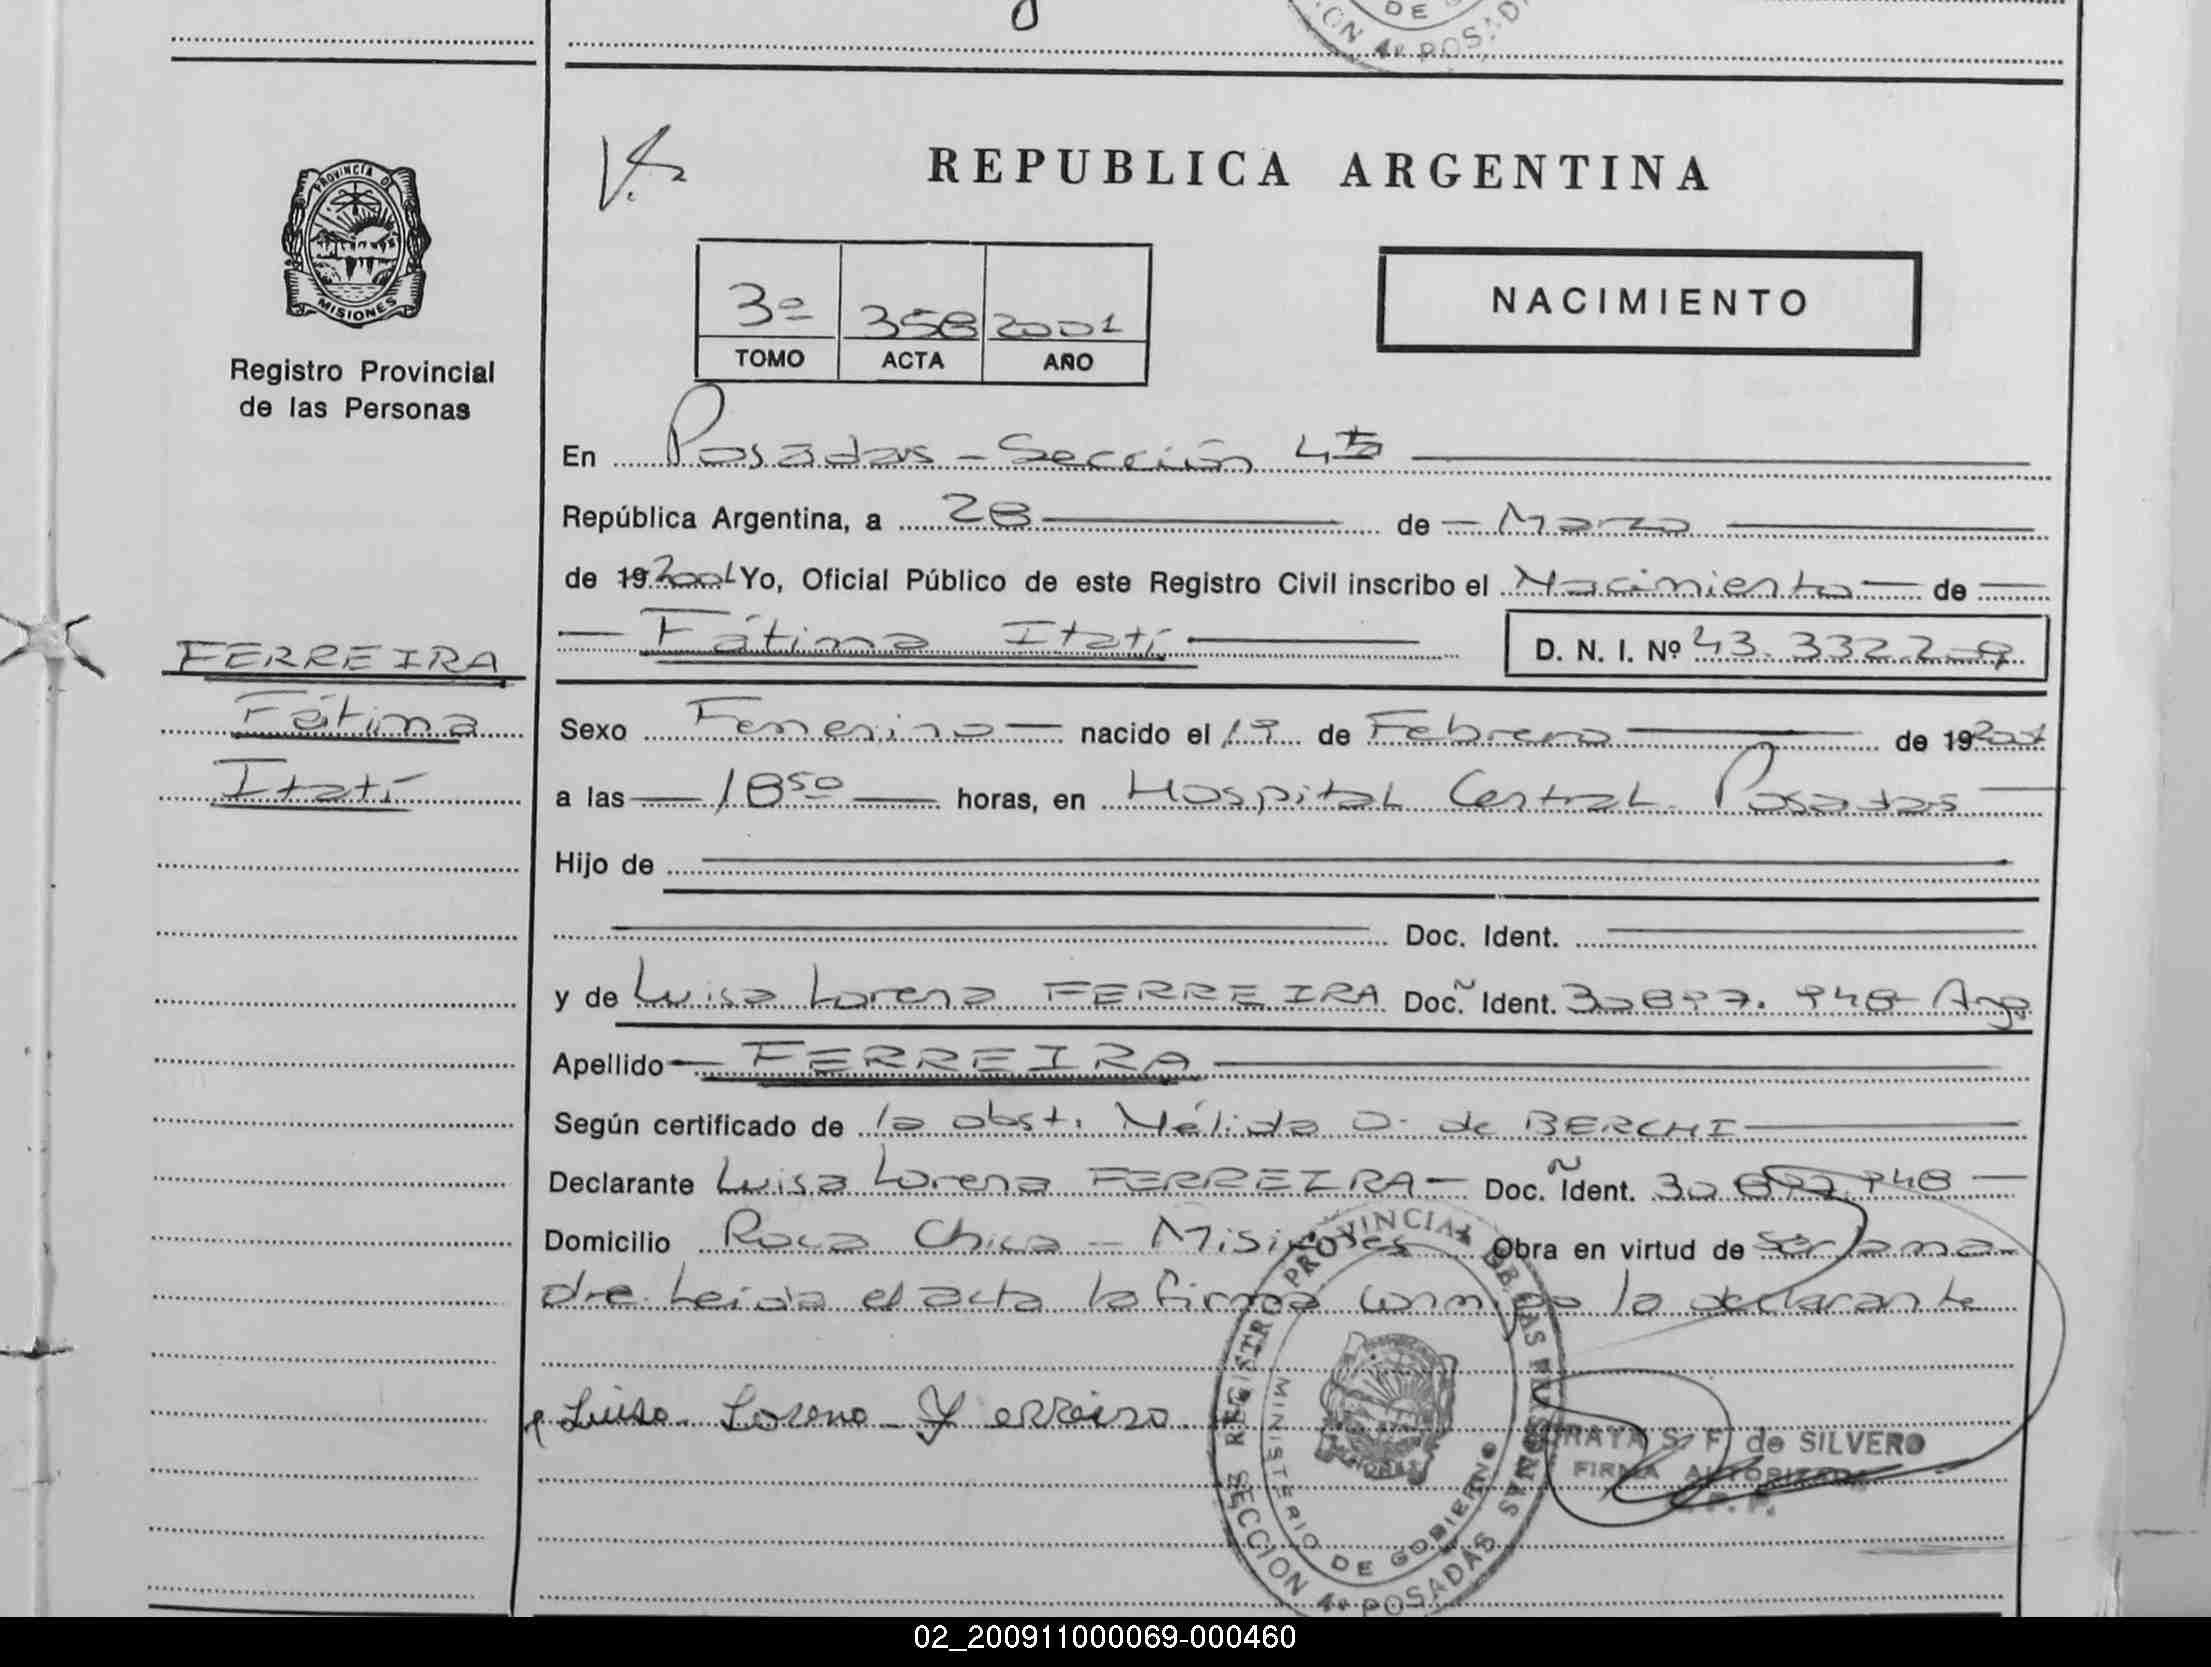 DE
ON 4ª POSAD
REPUBLICA ARGENTINA
PROVINCIA D
MISIONES
NACIMIENTO
3º 358 2001
TOMO ACTA AÑO
Registro Provincial
de las Personas
En Posadas - Sección 4ta
República Argentina, a 28 de Marzo
de 19 2001 Yo, Oficial Público de este Registro Civil inscribo el Nacimiento de
Fátima Itatí D. N. I. Nº 43.332.2
FERREIRA
Fátima
Itatí
Sexo Femenino nacido el 19 de Febrero de 19 2001
a las 18 50 horas, en Hospital Central Posadas
Hijo de
Doc. Ident.
y de Luisa Lorena FERREIRA Doc. Ident. 30.897.948 Arg
Apellido FERREIRA
Según certificado de la obst. Nélida O. de BERCHI
Declarante Luisa Lorena FERREIRA Doc. Ident. 30.897.948
Domicilio Roca Chica - Misiones Obra en virtud de ser la ma
dre. Leída el acta la firma conmigo la declarante
Luisa Lorena Ferreira
REGISTRO PROVINCIAL DE LAS PERSONAS
MINISTERIO DE GOBIERNO
SECCION 4ª POSADAS
MISIONES
RAYA S. F. de SILVERO
FIRMA AUTORIZADA
R. P. P.
02_200911000069-000460